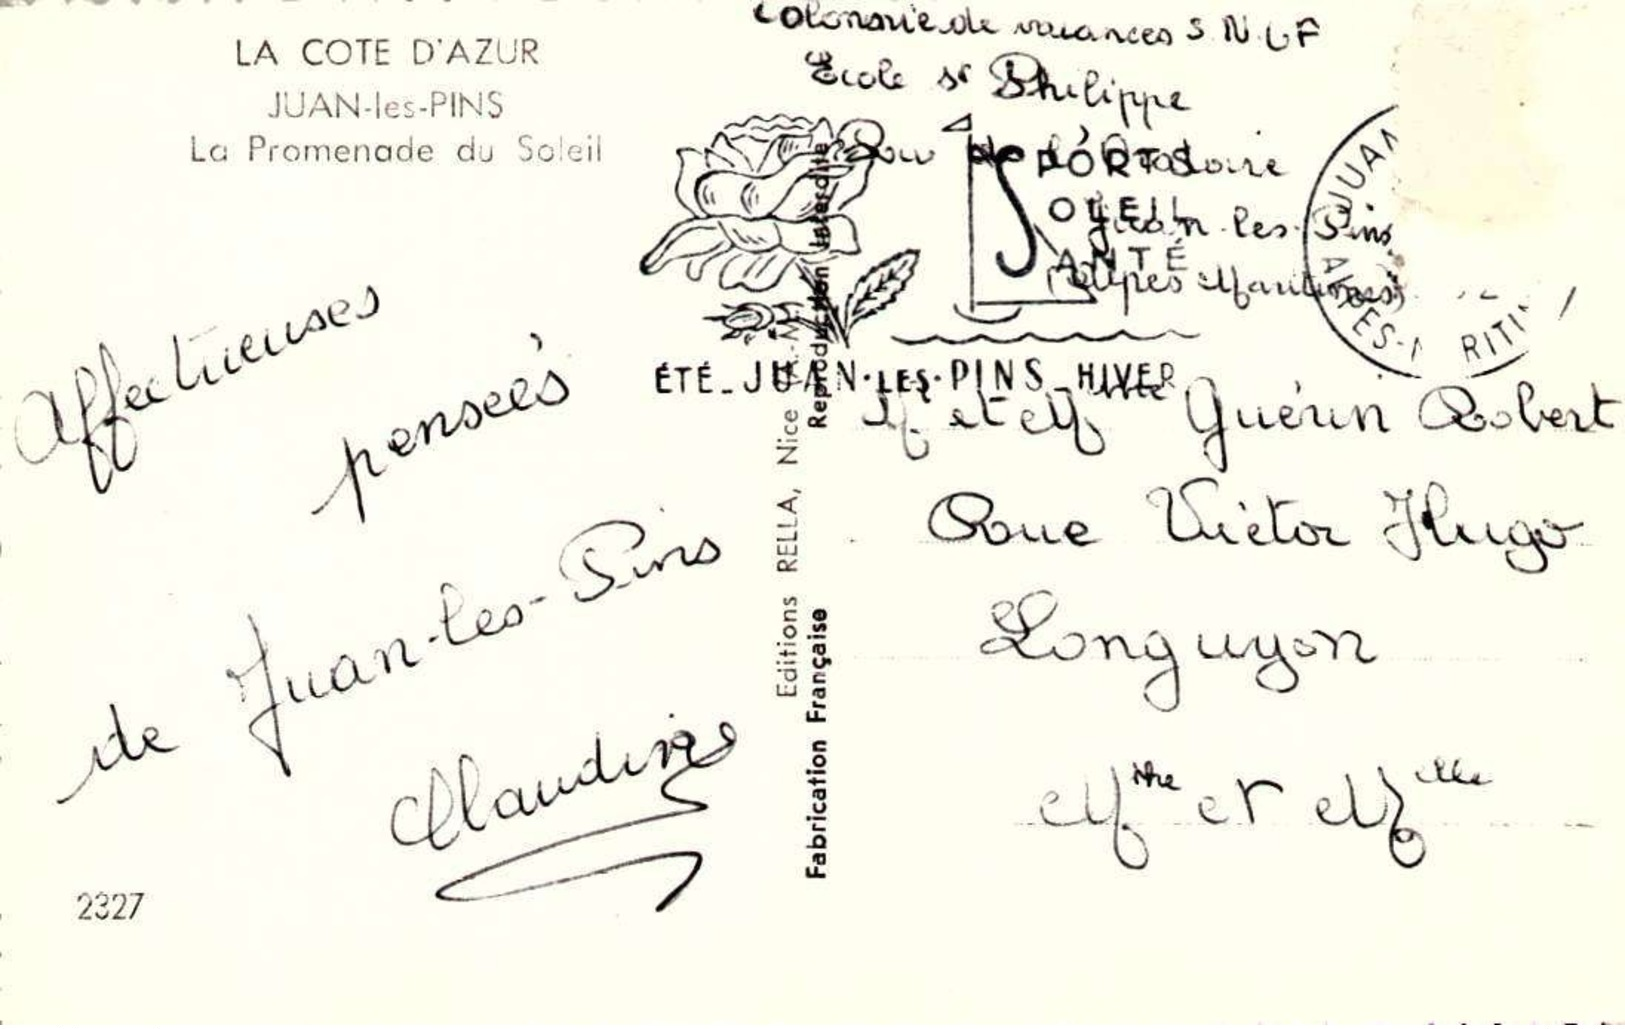 LA COTE D'AZUR
JUAN-les-PINS
La Promenade du Soleil
Affectueuses
pensées
de Juan-les-Pins
Claudine
2327
Editions RELLA, Nice
Fabrication Française
Reproduction Interdite
Colonnie de vacances S.N.C.F
Ecole St Philippe
de l'Oratoire
Juan les Pins
(Alpes Maritimes)
SPORTS
SOLEIL
SANTÉ
ÉTÉ_JUAN·LES·PINS_HIVER
JUAN
ALPES-M RITI
M et Mme Guérin Robert
Rue Victor Hugo
Longuyon
Mthe et Mlle